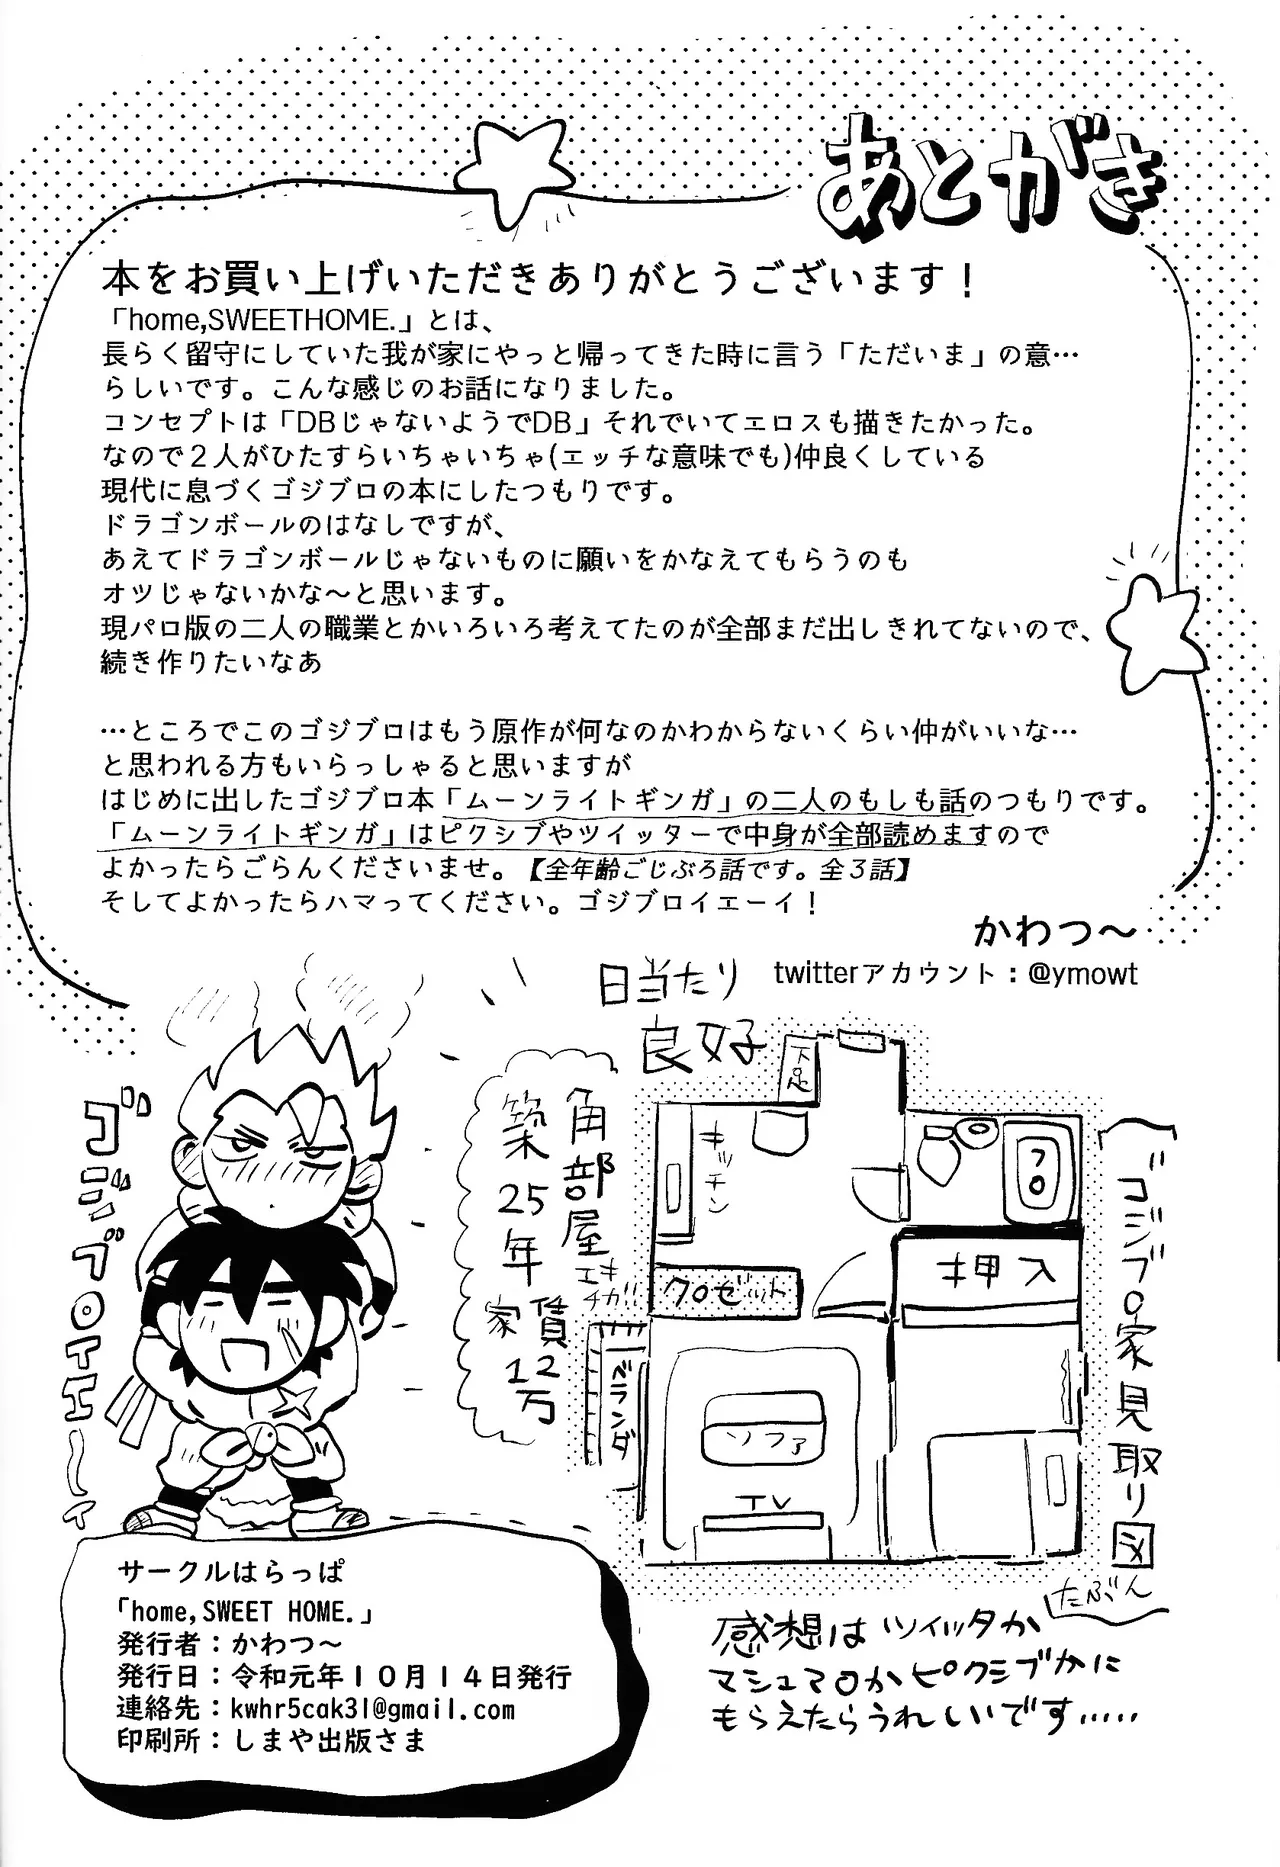 あとがき
本をお買い上げいただきありがとうございます！
「home,SWEETHOME.」とは、
長らく留守にしていた我が家にやっと帰ってきた時に言う「ただいま」の意…
らしいです。こんな感じのお話になりました。
コンセプトは「DBじゃないようでDB」それでいてエロスも描きたかった。
なので２人がひたすらいちゃいちゃ(エッチな意味でも)仲良くしている
現代に息づくゴジブロの本にしたつもりです。
ドラゴンボールのはなしですが、
あえてドラゴンボールじゃないものに願いをかなえてもらうのも
オツじゃないかな〜と思います。
現パロ版の二人の職業とかいろいろ考えてたのが全部まだ出しきれてないので、
続き作りたいなあ
…ところでこのゴジブロはもう原作が何なのかわからないくらい仲がいいな…
と思われる方もいらっしゃると思いますが
はじめに出したゴジブロ本「ムーンライトギンガ」の二人のもしも話のつもりです。
「ムーンライトギンガ」はピクシブやツイッターで中身が全部読めますので
よかったらごらんくださいませ。【全年齢ごじぶろ話です。全３話】
そしてよかったらハマってください。ゴジブロイエーイ！
かわつ〜
twitterアカウント：@ymowt
日当たり
良好
角部屋エキチカ!!
築25年
家賃12万
ゴジブロイエ〜イ
ゴジブロ家見取り図
たぶん
下足
キッチン
フロ
クロゼット
押入
ベランダ
ソファ
TV
感想はツイッタか
マシュマロかピクシブかに
もらえたらうれしいです.....
サークルはらっぱ
「home,SWEET HOME.」
発行者：かわつ〜
発行日：令和元年１０月１４日発行
連絡先：kwhr5cak3l@gmail.com
印刷所：しまや出版さま